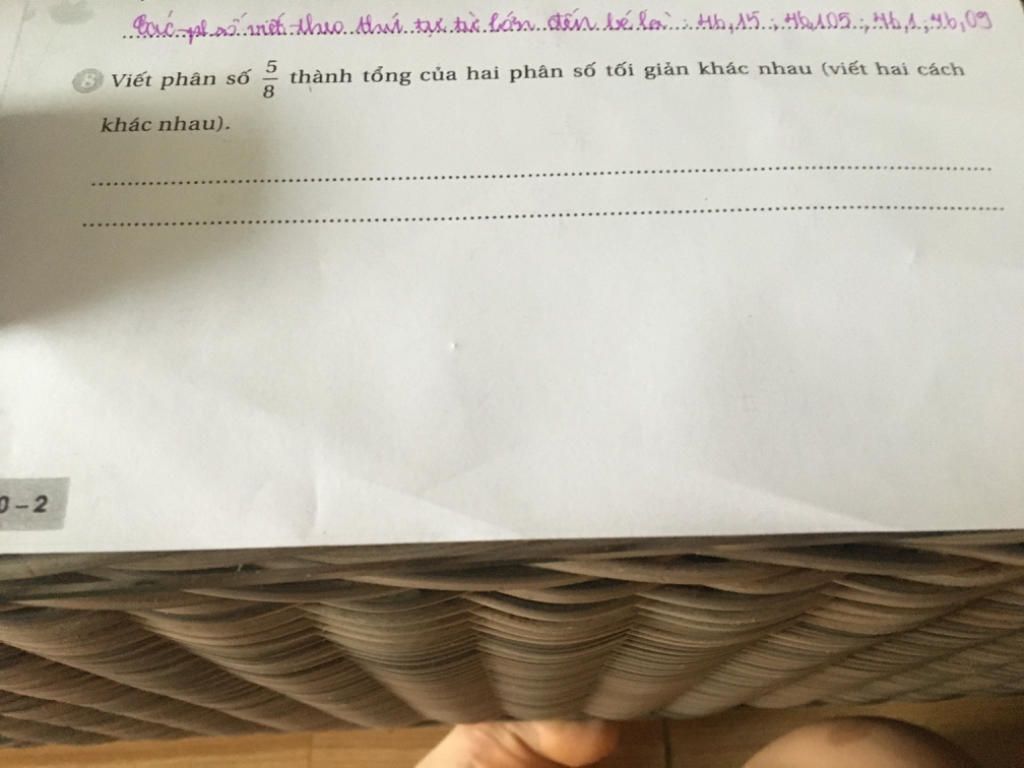 Các pl số viết theo thứ tự từ lớn đến bé là: 46,15; 46,105; 46,1; 46,09
8 Viết phân số 5/8 thành tổng của hai phân số tối giản khác nhau (viết hai cách
khác nhau).
0 – 2